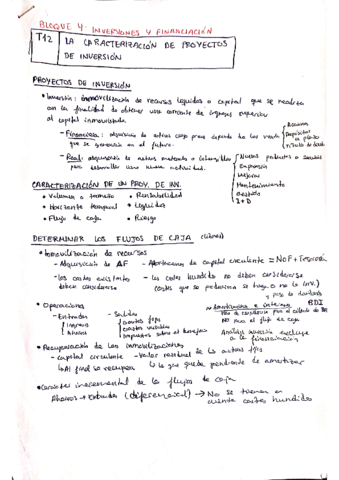 BLOQUE 4: INVERSIONES Y FINANCIACIÓN
T12 LA CARACTERIZACIÓN DE PROYECTOS
DE INVERSIÓN
PROYECTOS DE INVERSIÓN
• Inversión: inmovilización de recursos líquidos o capital que se realiza
con la finalidad de obtener una corriente de ingresos superior
al capital inmovilizado.
- Financiera: adquisición de activos cuyo precio depende de las rentas
que se generarán en el futuro.
Acciones
Depósitos a plazo
Títulos de deuda
- Real: adquisición de activos materiales o intangibles
para desarrollar una nueva actividad.
Nuevos productos o servicios
Expansión
Mejoras
Mantenimiento
I+D
CARACTERIZACIÓN DE UN PROY. DE INV.
• Volumen o tamaño • Rentabilidad
• Horizonte temporal • Liquidez
• Flujo de caja • Riesgo
DETERMINAR LOS FLUJOS DE CAJA
• Inmovilización de recursos
- Adquisición de AF - Aportaciones de capital circulante = NOF + Tesorería
- Los costes existentes - Los costes hundidos no deben considerarse
deben considerarse
• Operaciones
- Entradas - Salidas
Ingresos
Ahorros
Costes fijos
Costes variables
Impuestos sobre el beneficio
BDI
NO para el flujo de caja
Análisis inversión excluye
a la financiación
• Recuperación de las inmovilizaciones
- Capital circulante - Valor residual de los activos fijos
Al final se recupera Lo que queda pendiente de amortizar
• Carácter incremental de los flujos de caja
Ahorros → Entradas (diferencial) → No se tienen en
cuenta costes hundidos